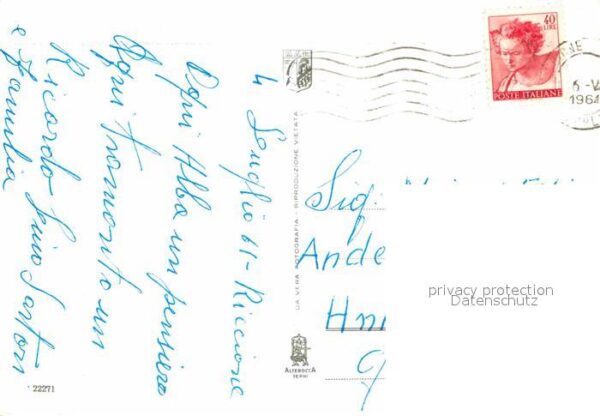 4 Luglio 61 - Riccione
Ogni Alba un pensiero
Ogni tramonto un
Ricordo Sartori
e Familia
22271
DA VERA FOTOGRAFIA - RIPRODUZIONE VIETATA
ALTEROCCA
TERNI
40
LIRE
POSTE ITALIANE
1961
Sig.
Ande
privacy protection
Datenschutz